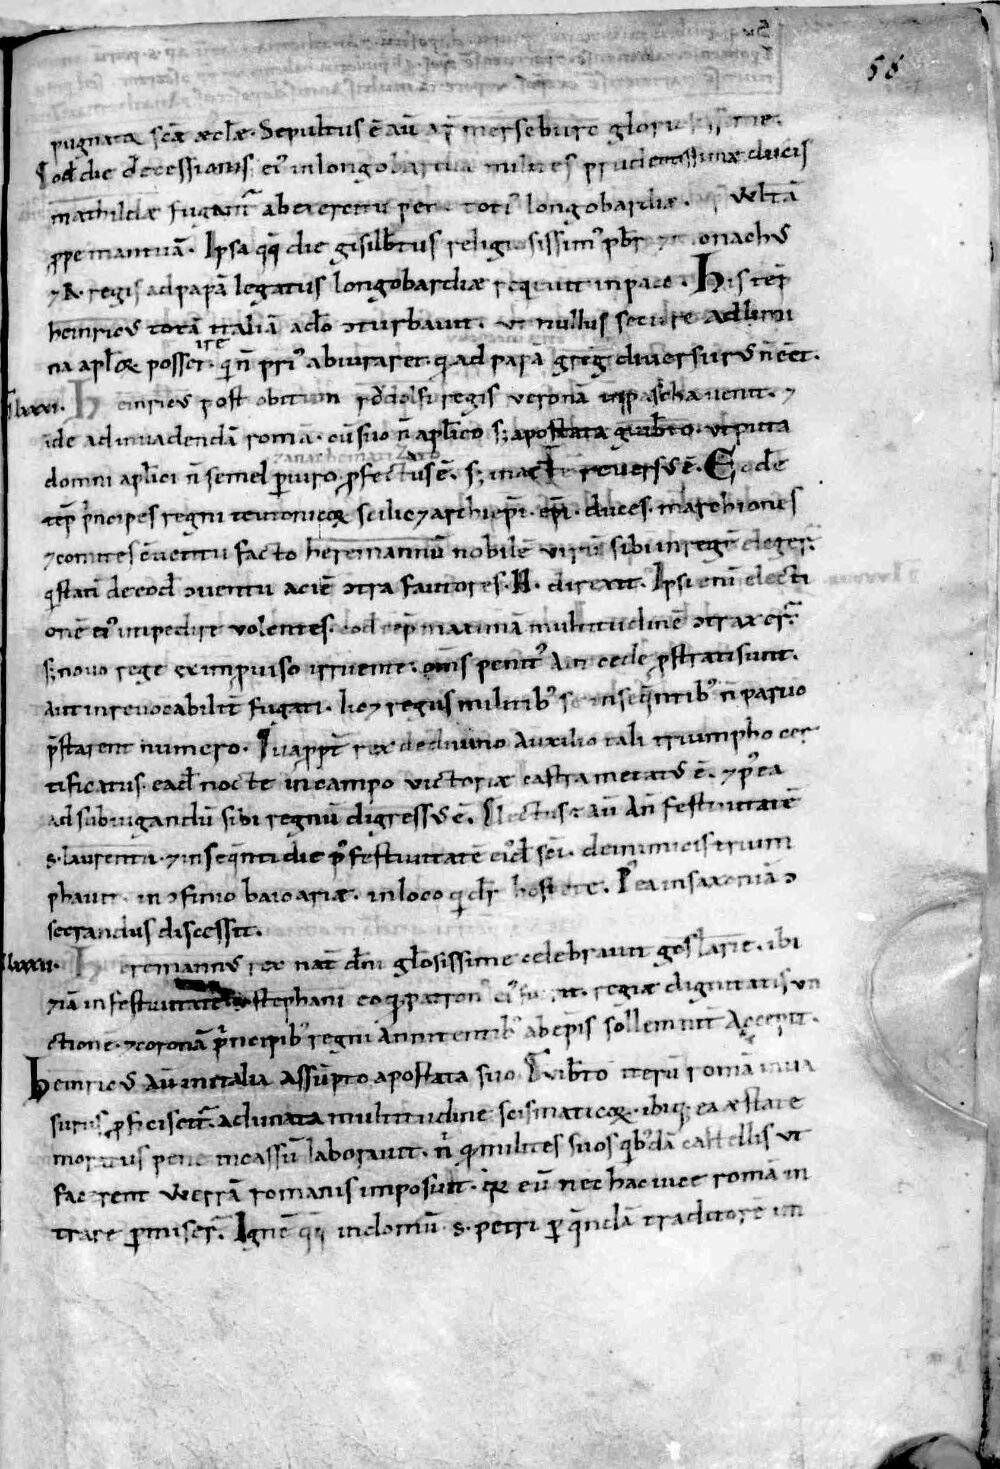 58
pugnatæ scæ æcclæ. Sepultus ē aū ap̄ merseburc
Eod die decessionis ei᾽ in longobardia milites prudentissimæ ducis
mathildæ fugant᷑ ab exercitu toti᾽ longobardiæ. Vvltā
ꝓpe mantuā. Ipsa qq̄ die gisilbtus religiosissim᾽ pbr ⁊ monachus
⁊ A. regis ad papā legatus longobardiæ requiuit in pace. His tēp
heinricus totā italiā adeo ɔturbauit. ut nullus secure ad limi
na aplo℞ posset ire. qi n̄ pri᾽ abiuraret. qd ad papā greg̅ diuersurus n̄ eēt.
lxxxi. Heinricus post obitum rodolfi regis veronā in pascha uenit. ⁊
idē ad inuadendā romā. cū suo n̄ aplico s; apostata guibto. ut puta
domni aplici n̄ semel ꝑiuro ⁊ anathematizato ꝓfectus ē. s; inacte reuersus ē. Eode
tēp principes regni teutonico℞ scilic ⁊ archiepi. epi. duces. marchiones
⁊ comites ɔuentu facto herimannū nobilē virū sibi in regē eleger᷑.
qi statī de eod ɔuentu aciē ɔtra fautores. H. direxit. Ipsi eni electi
onē ei᾽ impedire volentes. eod tēp maximā multitudinē ɔtraxer᷑.
s; nouo rege ex improuiso irruente. om̄s penit᾽ aut cede ꝓstrati sunt.
aut inreuocabilit᷑ fugati. lic ⁊ regiis militib᾽ se insequentib᾽ n̄ paruo
p̄starent numero. Quappt᷑ rex de diuino auxilio tali triumpho cer
tificatus. eadē nocte in campo victoriæ castra metatus ē. ⁊ p᾽ea
ad subiugandū sibi regnū digressus ē. Electus ē aū an̄ festiuitatē
s. laurentii. ⁊ in sequenti die p᾽ festiuitatē ei᾽dē sci. de inimicis trium
phauit. in ɔfinio baioariæ. in loco qi dr̄ hostete. P᾽ea in saxoniā ɔ
secrandus discessit.
lxxxii. Herimannus rex nat dn̄i gl̄osissime celebrauit goslarie. ibi
⁊iā in festiuitate s. stephani eo qd patron᾽ ei᾽ fuerit. regiæ dignitatis un
ctionē. ⁊ coronā principib᾽ regni annitentib᾽ ab epis sollemnit᷑ accepit.
Heinricus aū in italia assūpto apostata suo. Guibto iterū romā inua
surus ꝓficiscit᷑. adunata multitudine scismatico℞. ibiq; ea æstate
moratus pene incassū laborauit. n̄ qd milites suos quib᾽dā castellis ut
facerent werrā romanis imposuit. quia eū nec hac uice romā in
trare ꝑmiser᷑. Ignē qq̄ in domū. s. petri ꝑ quendā traditorē im